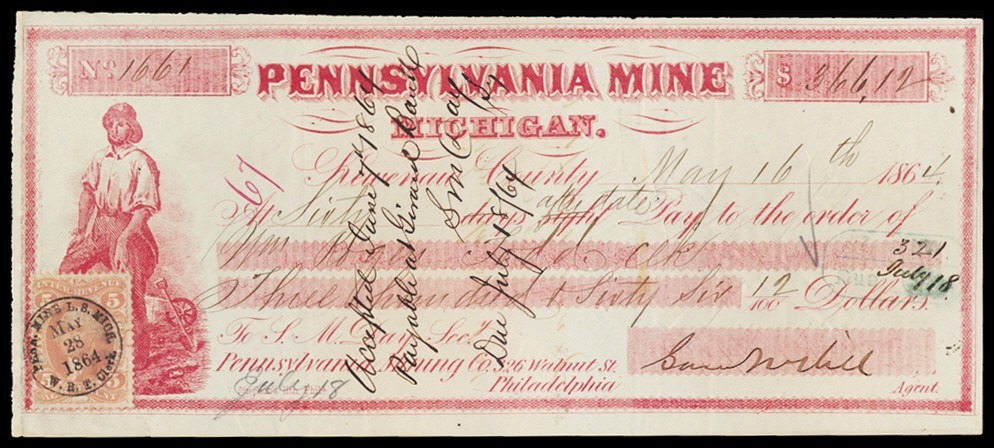 No. 1661
PENNSYLVANIA MINE
$ 366,12
MICHIGAN.
67
Keweenaw County May 16th 1864.
At Sixty days after date Pay to the order of
Wm
321
July 18
Three hundred & Sixty Six 12/100 Dollars.
To S. M. Day Secy
Pennsylvania Mining Co. 326 Walnut St.
Philadelphia
Agent.
July 18
Accepted June 7th 1864
Payable at Girard Bank
S M Day
Due July 18/64
U.S.
INTER. REVENUE
5 5
PENN. MINE L. S. MICH.
MAY
28
1864